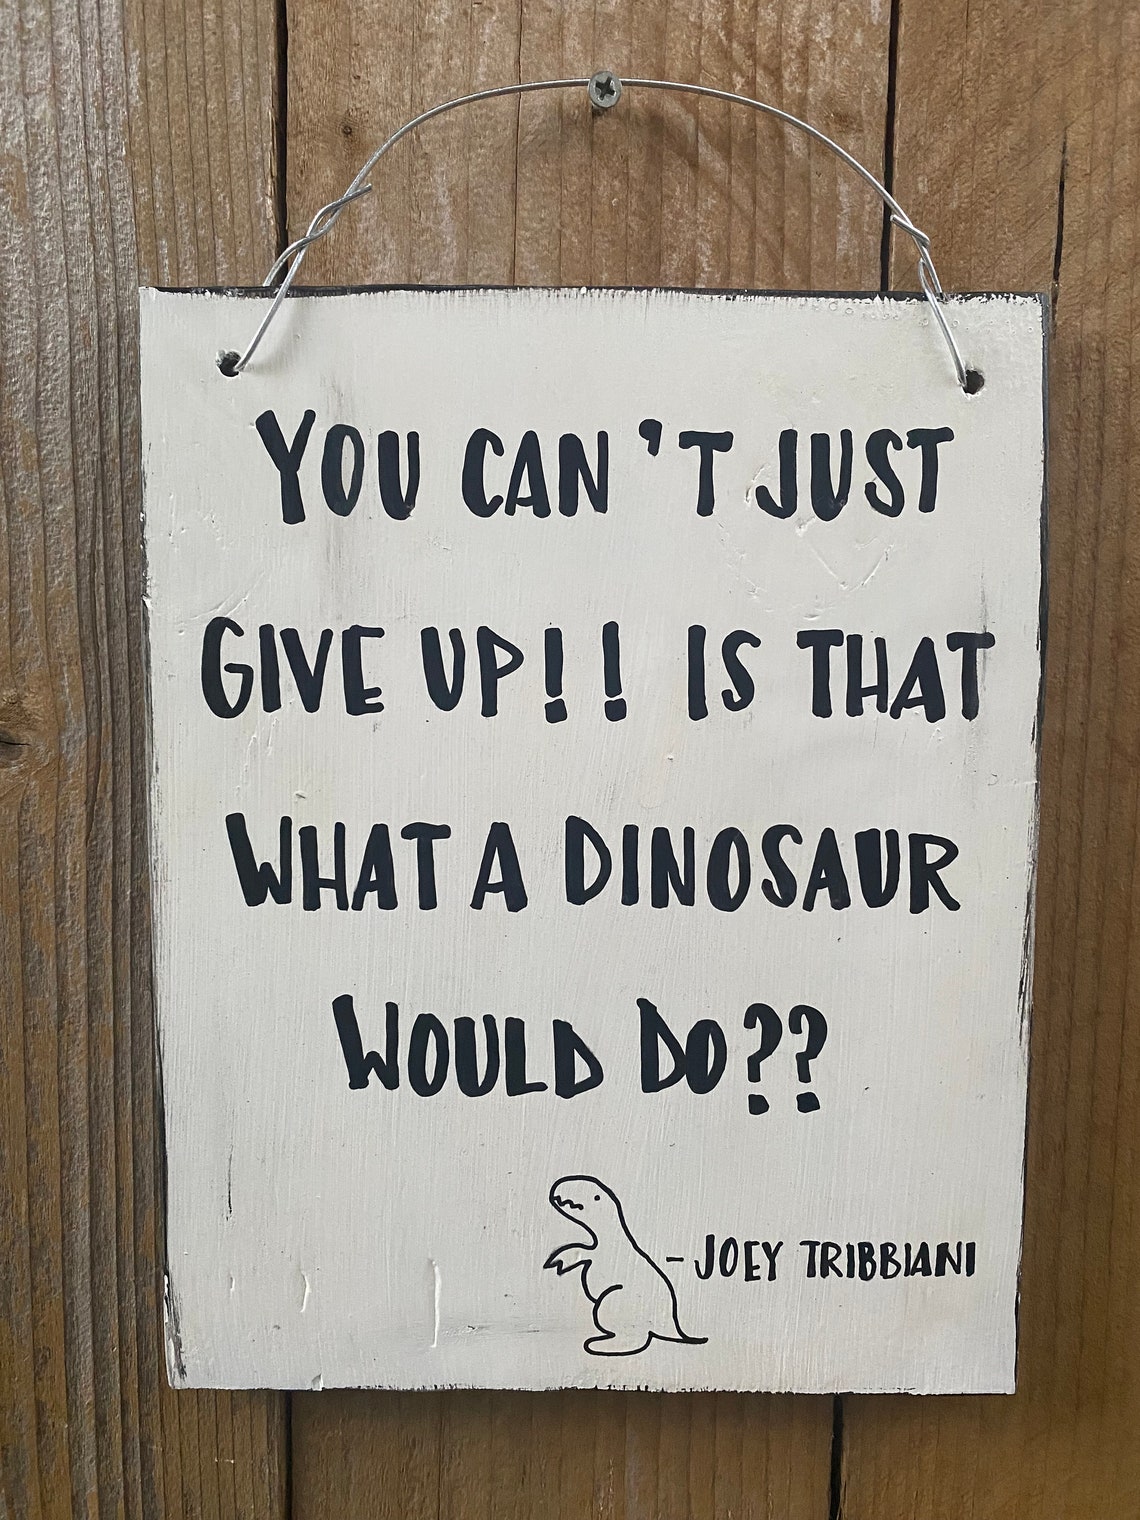 YOU CAN'T JUST
GIVE UP!! IS THAT
WHAT A DINOSAUR
WOULD DO??
-JOEY TRIBBIANI